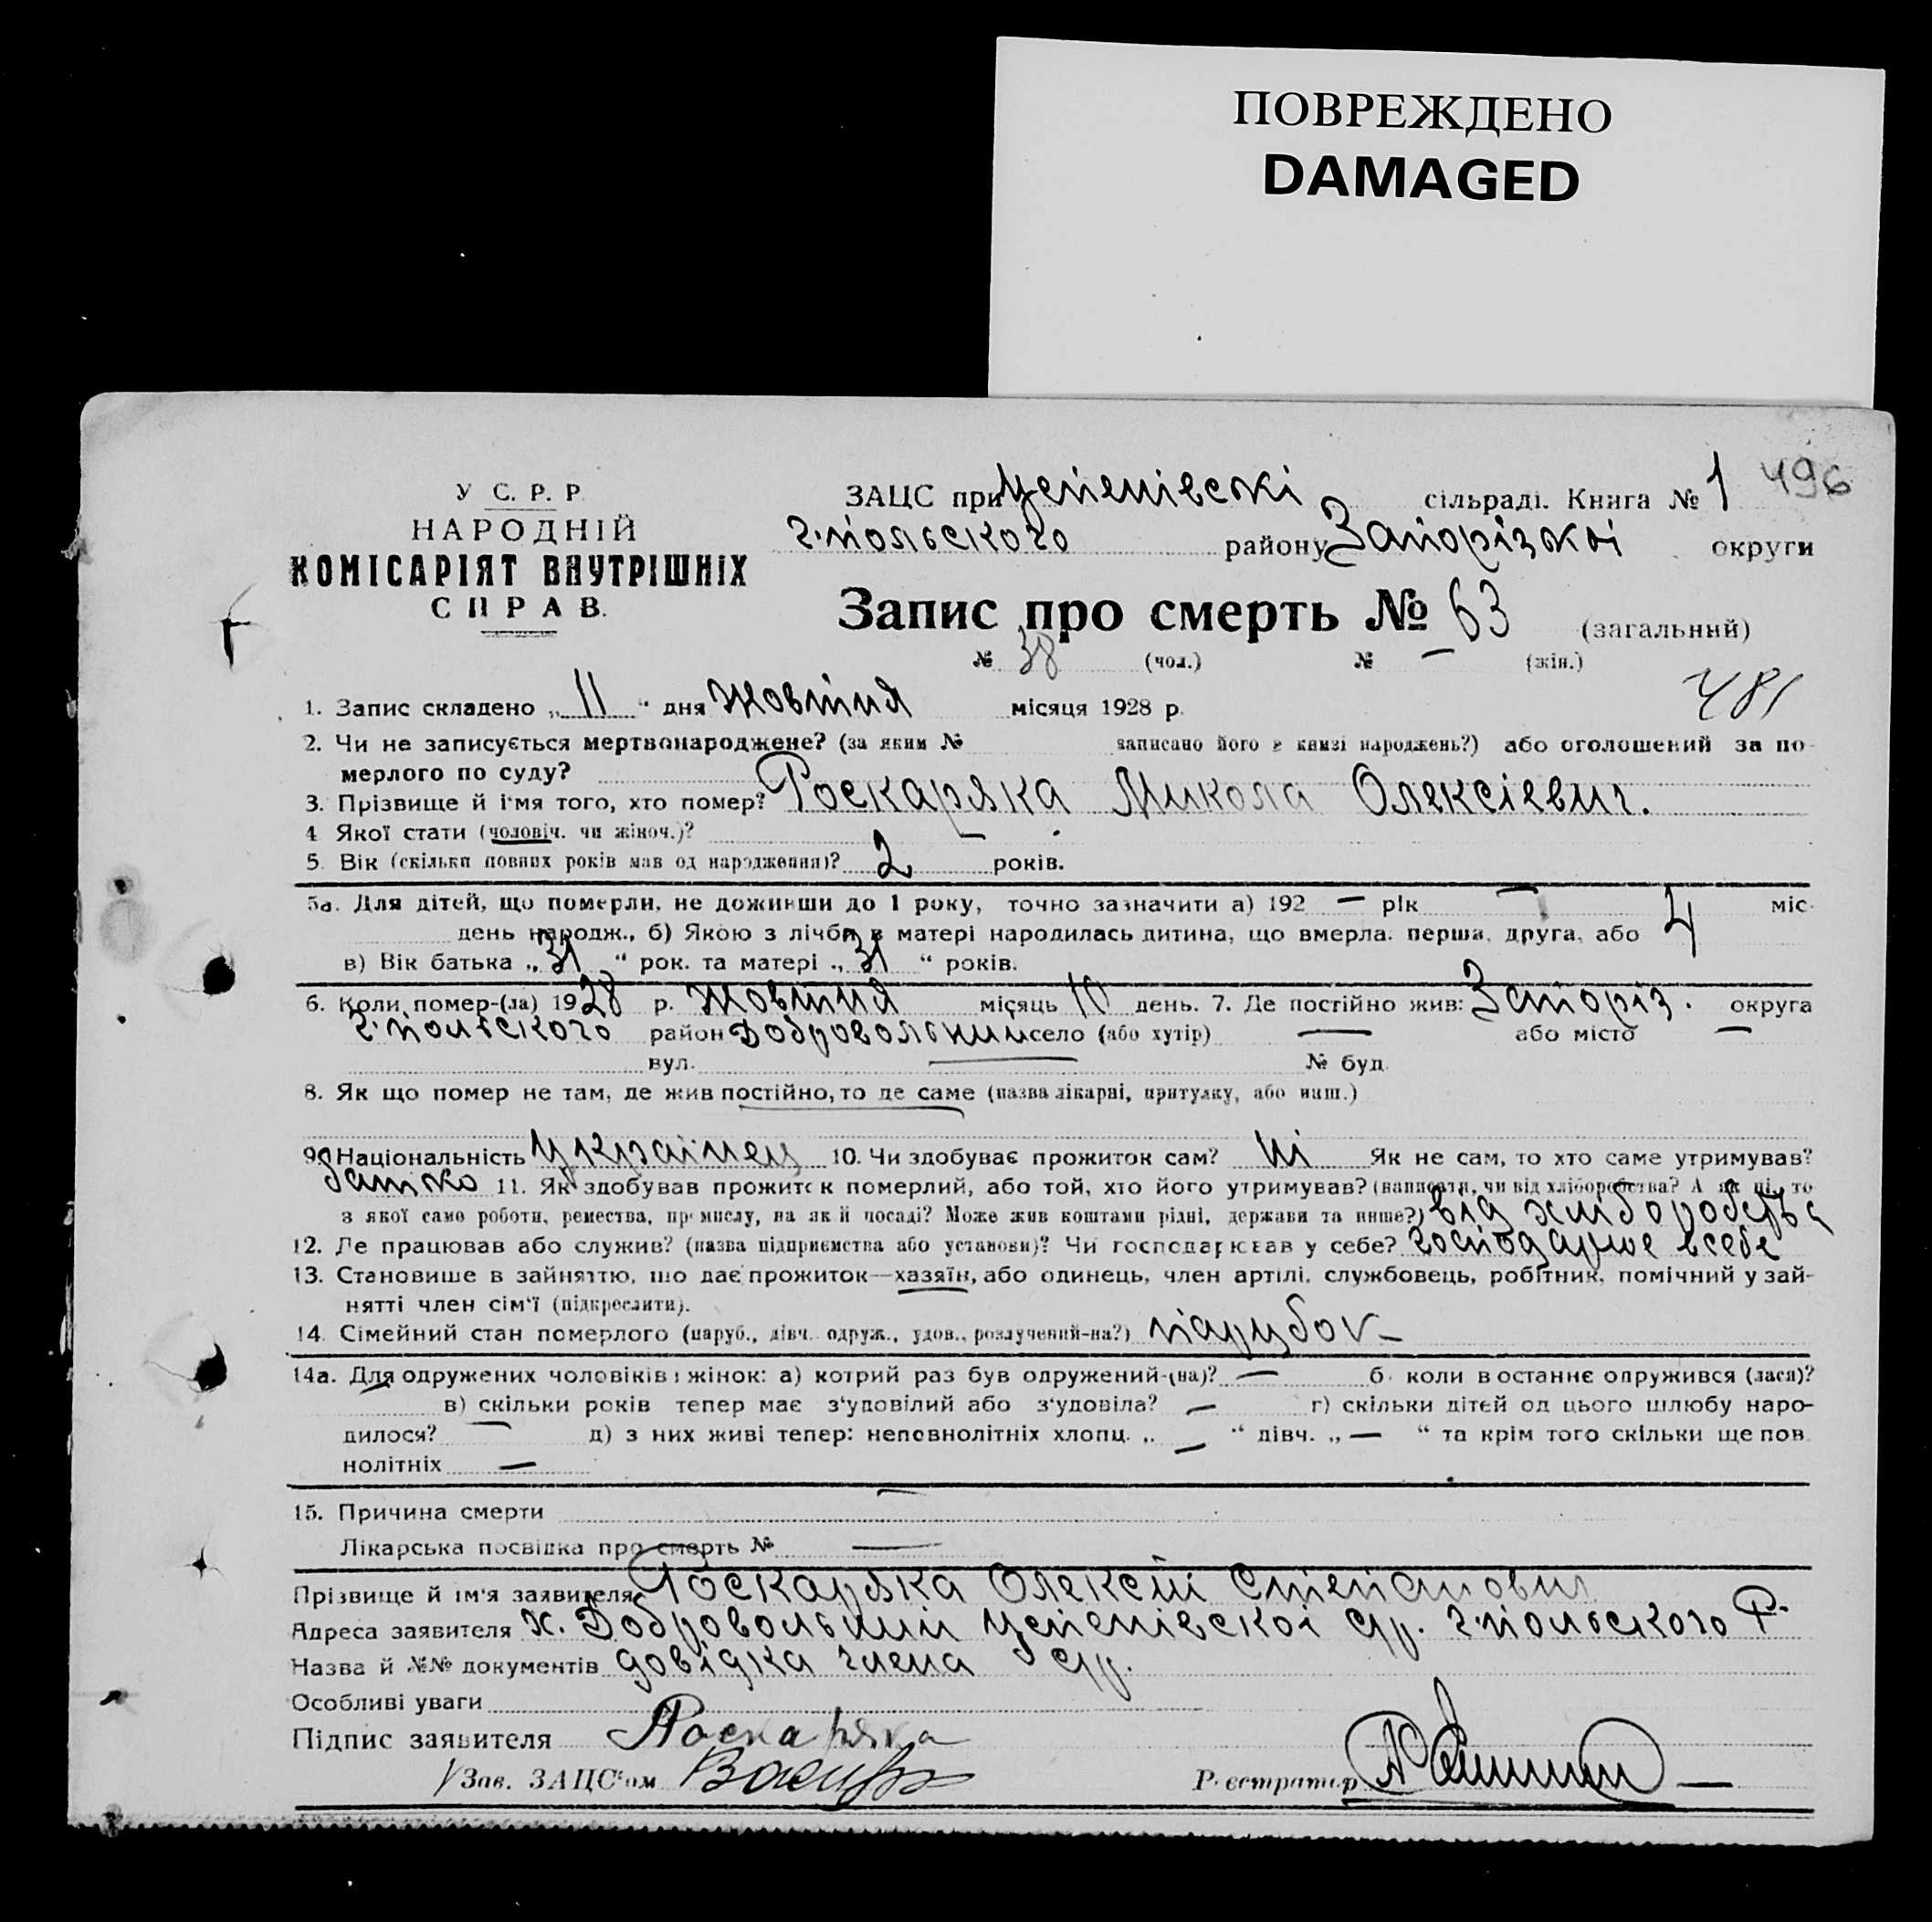 ПОВРЕЖДЕНО
DAMAGED
У С. Р. Р.
НАРОДНІЙ
КОМІСАРІЯТ ВНУТРІШНІХ
СПРАВ.
ЗАЦС при Успенівські сільраді. Книга № 1 496
г.польського району Запорізької округи
Запис про смерть № 63 (загальний)
№ 38 (чол.) № — (жін.)
481
1. Запис складено „ 11 “ дня Жовтня місяця 1928 р.
2. Чи не записується мертвонароджене? (за яким № записано його в книзі народжень?) або оголошений за по-
мерлого по суду?
3. Прізвище й ім'я того, хто помер? Роскаряка Микола Олексієвич.
4 Якої стати (чоловіч. чи жіноч.)?
5. Вік (скільки повних років мав од народження)? 2 років.
5а. Для дітей, що померли, не доживши до 1 року, точно зазначити а) 192 — рік — міс.
день народж., б) Якою з лічби в матері народилась дитина, що вмерла: перша, друга, або 4
в) Вік батька „ 31 “ рок. та матері „ 31 “ років.
6. Коли помер-(ла) 1928 р. Жовтня місяць 10 день. 7. Де постійно жив: Запоріз. округа
г.польського район Добровольний село (або хутір) — або місто —
вул. — № буд.
8. Як що помер не там, де жив постійно, то де саме (назва лікарні, притулку, або инш.)
9. Національність Українец 10. Чи здобуває прожиток сам? ні Як не сам, то хто саме утримував?
батько 11. Як здобував прожиток померлий, або той, хто його утримував? (написати, чи від хліборобства? А як ні, то
з якої само роботи, ремества, промислу, на якій посаді? Може жив коштами рідні, держави та инше?) від хліборобства
12. Де працював або служив? (назва підприємства або установи)? Чи господарював у себе? господарює всебе
13. Становище в зайняттю, що дає прожиток—хазяїн, або одинець, член артілі, службовець, робітник, помічний у зай-
нятті член сім'ї (підкреслити).
14. Сімейний стан померлого (паруб., дівч. одруж., удов., розлучений-на?) парубок
14а. Для одружених чоловіків і жінок: а) котрий раз був одружений-(на)? — б) коли востаннє одружився (лася)?
в) скільки років тепер має з'удовілий або з'удовіла? — г) скільки дітей од цього шлюбу наро-
дилося? — д) з них живі тепер: неповнолітніх хлопц. „ — “ дівч. „ — “ та крім того скільки ще пов
нолітніх —
15. Причина смерти —
Лікарська посвідка про смерть № —
Прізвище й ім'я заявителя Роскаряка Олексій Степанович
Адреса заявителя х. Добровольний Успенівської с/р. г.польського Р.
Назва й №№ документів довідка члена с/р.
Особливі уваги
Підпис заявителя Роскаряка
Зав. ЗАЦС'ом
Реєстратор